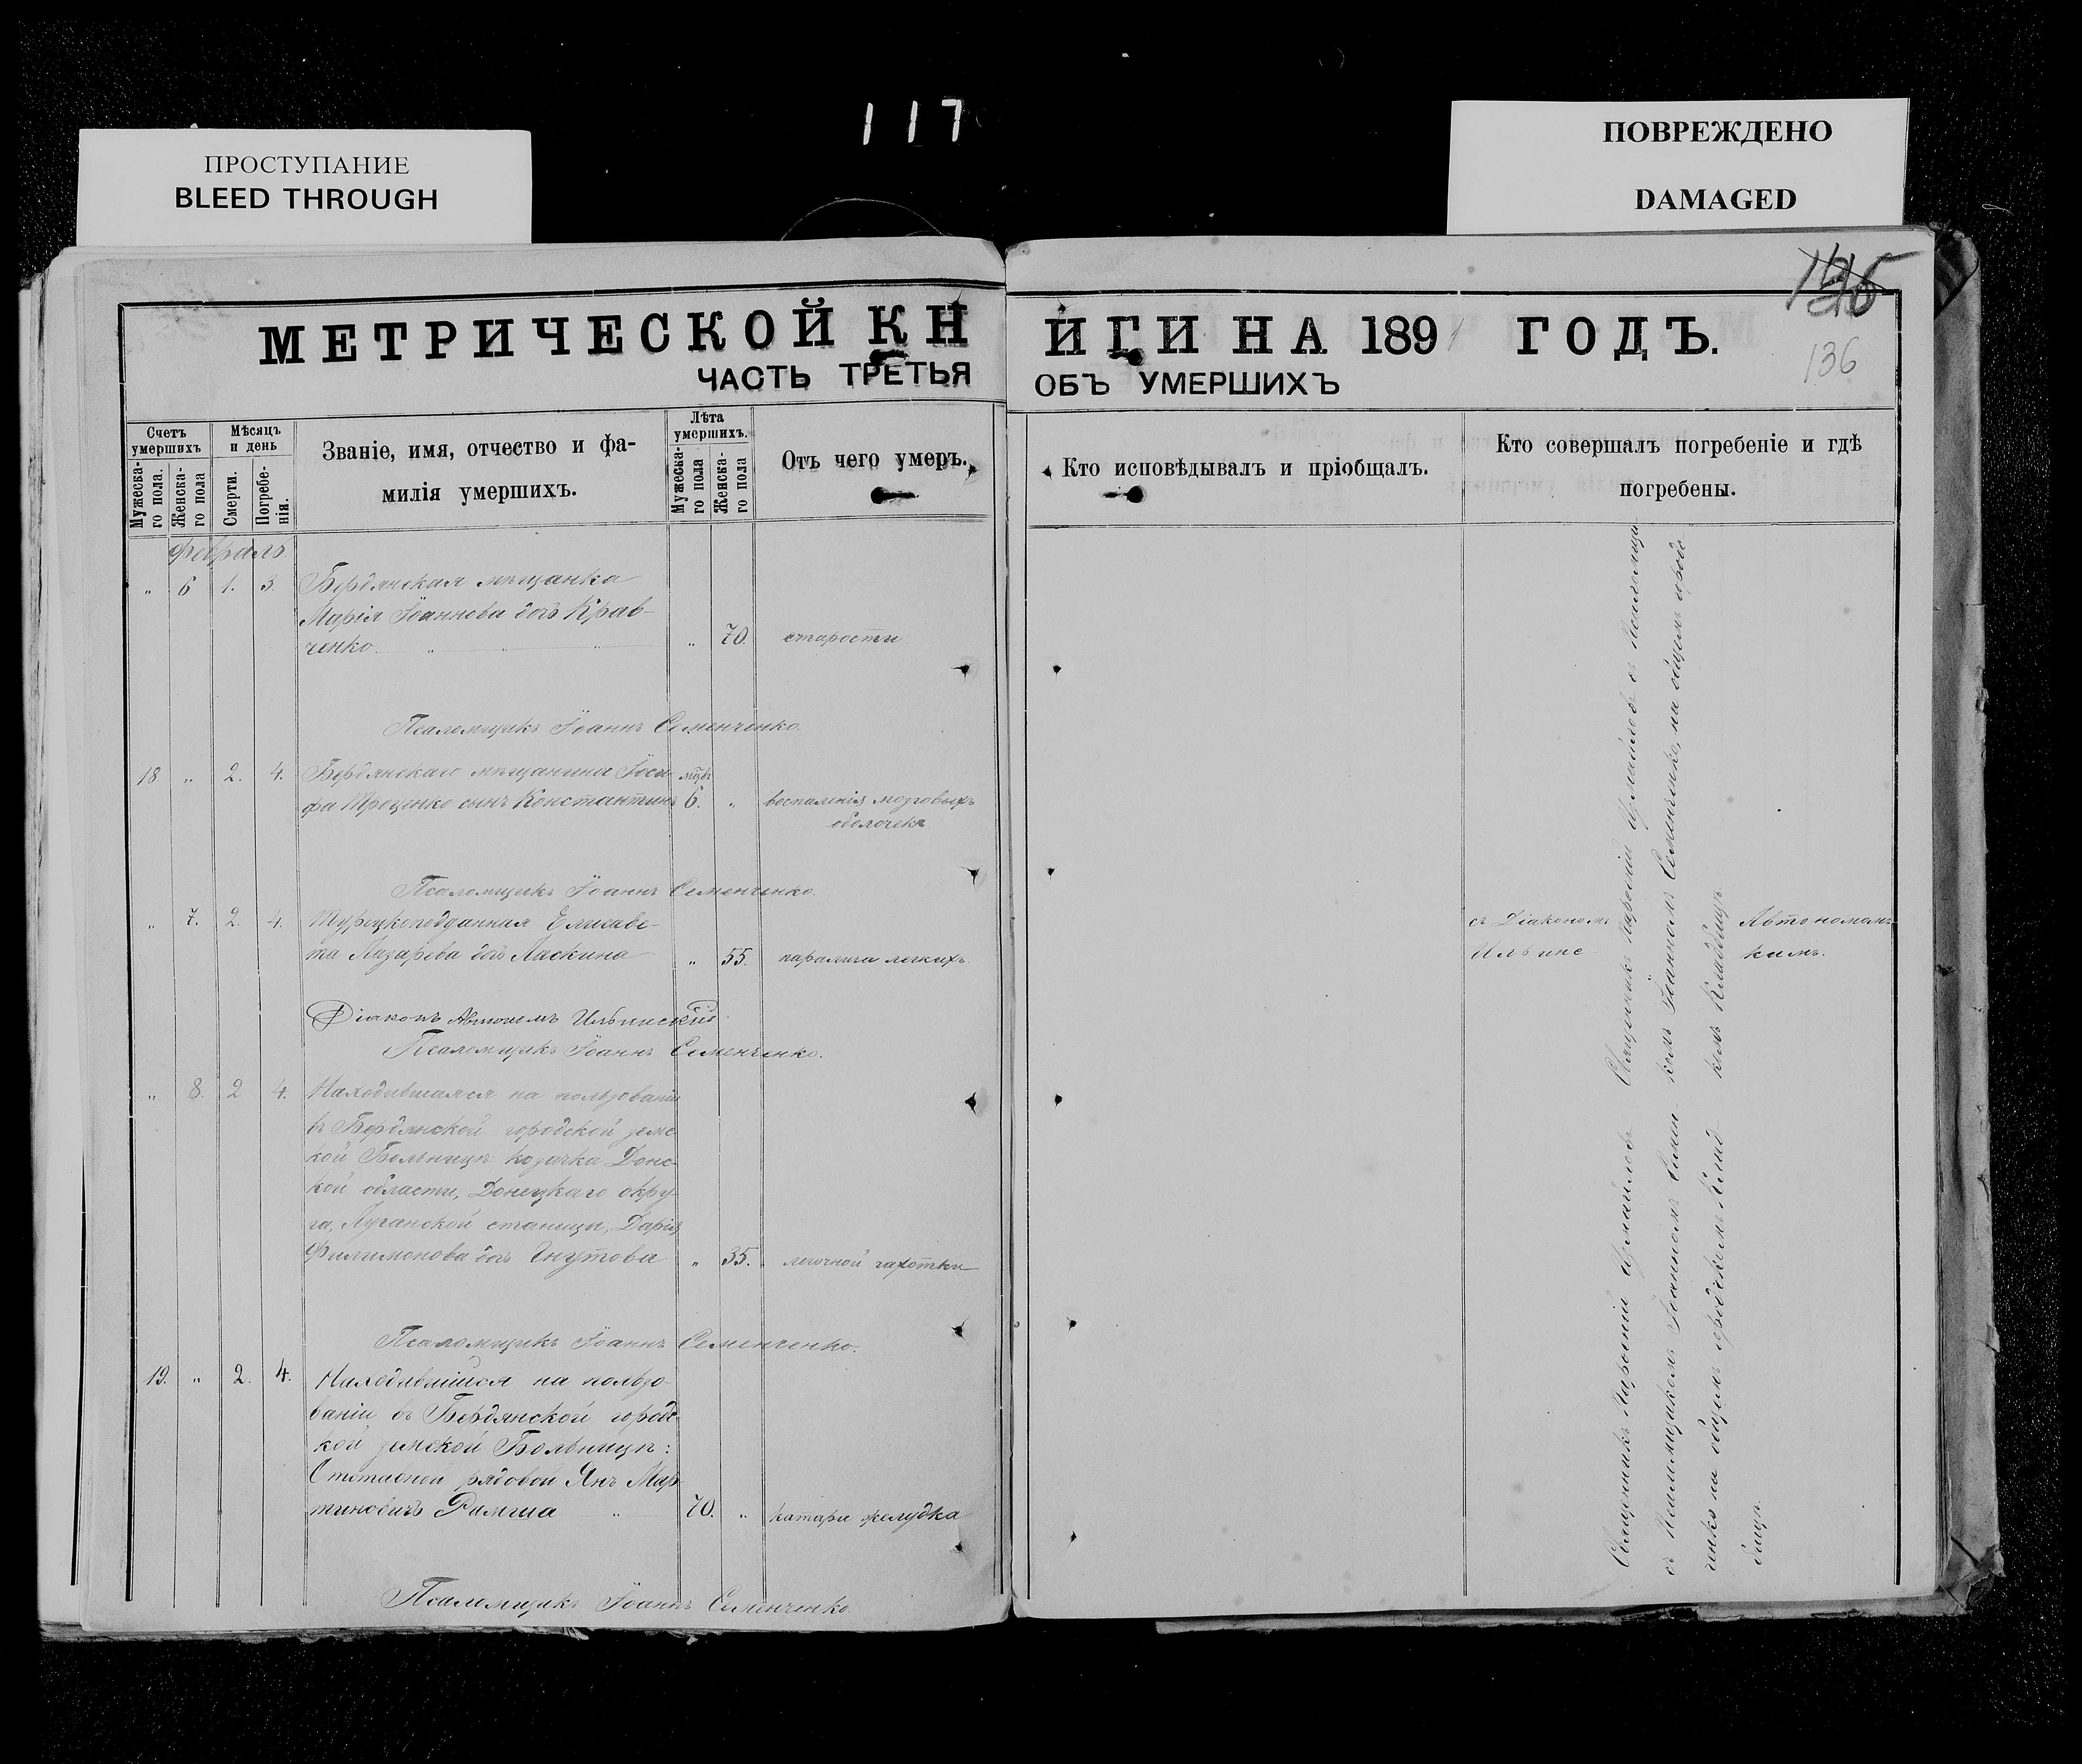 117
ПРОСТУПАНИЕ
BLEED THROUGH
ПОВРЕЖДЕНО
DAMAGED
136
МЕТРИЧЕСКОЙ КНИГИ НА 1891 ГОДЪ.
ЧАСТЬ ТРЕТЬЯ ОБЪ УМЕРШИХЪ
Счетъ умершихъ
Мужеска-го пола.
Женска-го пола
Мѣсяцъ и день
Смерти.
Погребе-нія.
Званіе, имя, отчество и фа-
милія умершихъ.
Лѣта умершихъ.
Мужеска-го пола
Женска-го пола
Отъ чего умеръ.
Кто исповѣдывалъ и пріобщалъ.
Кто совершалъ погребеніе и гдѣ
погребены.
Февраль
" 6 1. 3. Бердянская мѣщанка
Марія Іоаннова дочь Крав-
ченко " " " " 70. старости
Псаломщикъ Іоаннъ Семенченко.
18 " 2. 4. Бердянскаго мѣщанина Іоси- мѣс.
фа Троценко сынъ Константинъ 6. " воспаленія мозговыхъ
оболочекъ
Псаломщикъ Іоаннъ Семенченко.
" 7. 2. 4. Турецкоподданная Елисаве-
та Лазарева дочь Ласкина " 55. паралича легкихъ.
Діаконъ Автономъ Ильинскій
Псаломщикъ Іоаннъ Семенченко.
" 8. 2 4. Находившаяся на пользованіи
въ Бердянской городской земс-
кой Больницѣ козачка Донс-
кой области, Донецкаго окру-
га, Луганской станицы, Дарія
Филимонова дочь " 35. легочной чахотки
Псаломщикъ Іоаннъ Семенченко.
19. " 2. 4. Находившійся на пользо-
ваніи въ Бердянской городс-
кой земской Больницѣ:
Отставной рядовой Янъ Мар-
тиновичъ Рамша " 70. " катара желудка
Псаломщикъ Іоаннъ Семенченко
Священникъ Михаилъ съ Псаломщи-
комъ Іоанномъ Семенченко, на общемъ городс-
комъ Кладбищѣ.
съ Діакономъ Автономомъ
Ильинс- кимъ.
Священникъ
съ Псаломщикомъ Іоанномъ Семен-
ченко на общемъ городскомъ Клад-
бищѣ.